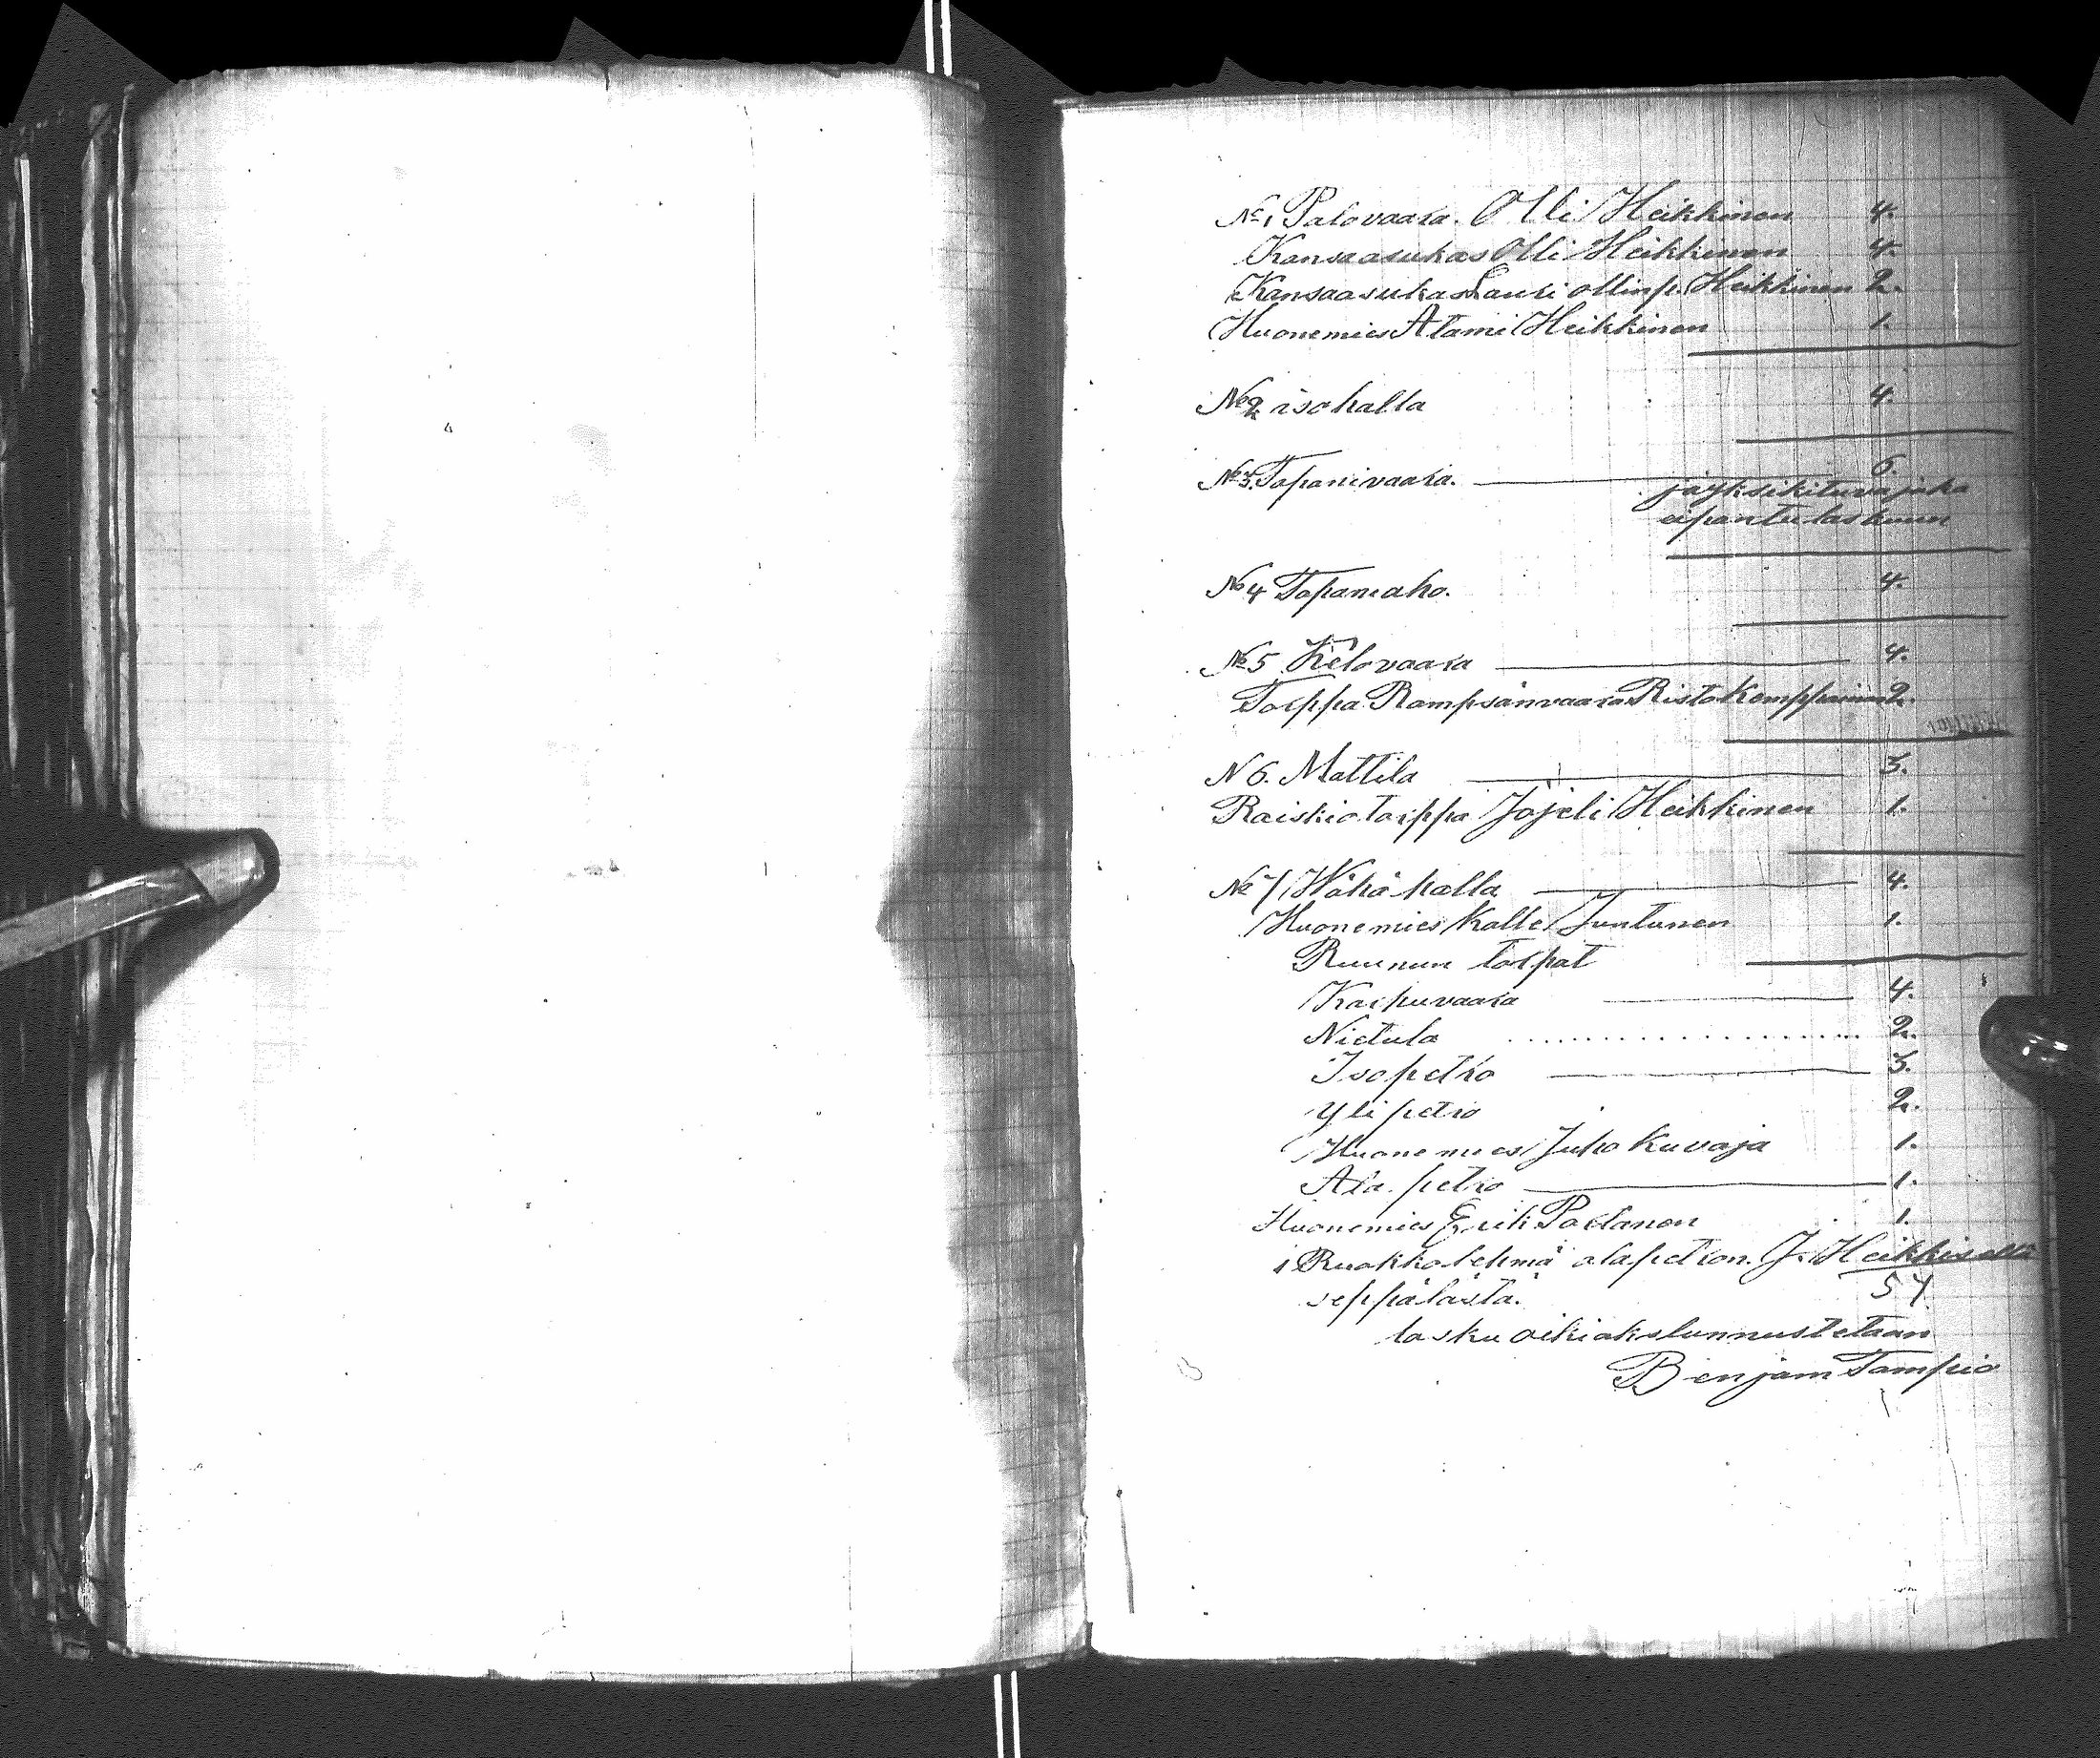 No 1 Palovaara. Olli Heikkinen 4.
Kansaasukas Olli Heikkinen 4.
Kansaasukas Lauri ollinp. Heikkinen 2.
Huonemies Atami Heikkinen 1.
No 2 isohalla 4.
No 3. Tapanivaara. 6.
ja yksi kituva joka
ei pantu laskuun
No 4 Tapaniaho. 4.
No 5 Kelovaara 4.
Torppa Rampsänvaara Risto Komppainen 2.
N 6. Mattila 3.
Raiskiotorppa Jojeli Heikkinen 1.
No 7 Wähähalla 4.
Huonemies Kalle Juntunen 1.
Ruunun torpat
Karpuvaara 4.
Nietula 2.
Isopetro 3.
Yli petro 2.
Huonemies Juho Kuvaja 1.
Ala petro 1.
Huonemies Erik Partanen 1.
1 Ruokkolehmä alapetron. J. Heikkiseltä
seppälästä. 54
lasku oikiaks tunnustetaan
Benjam Tampio